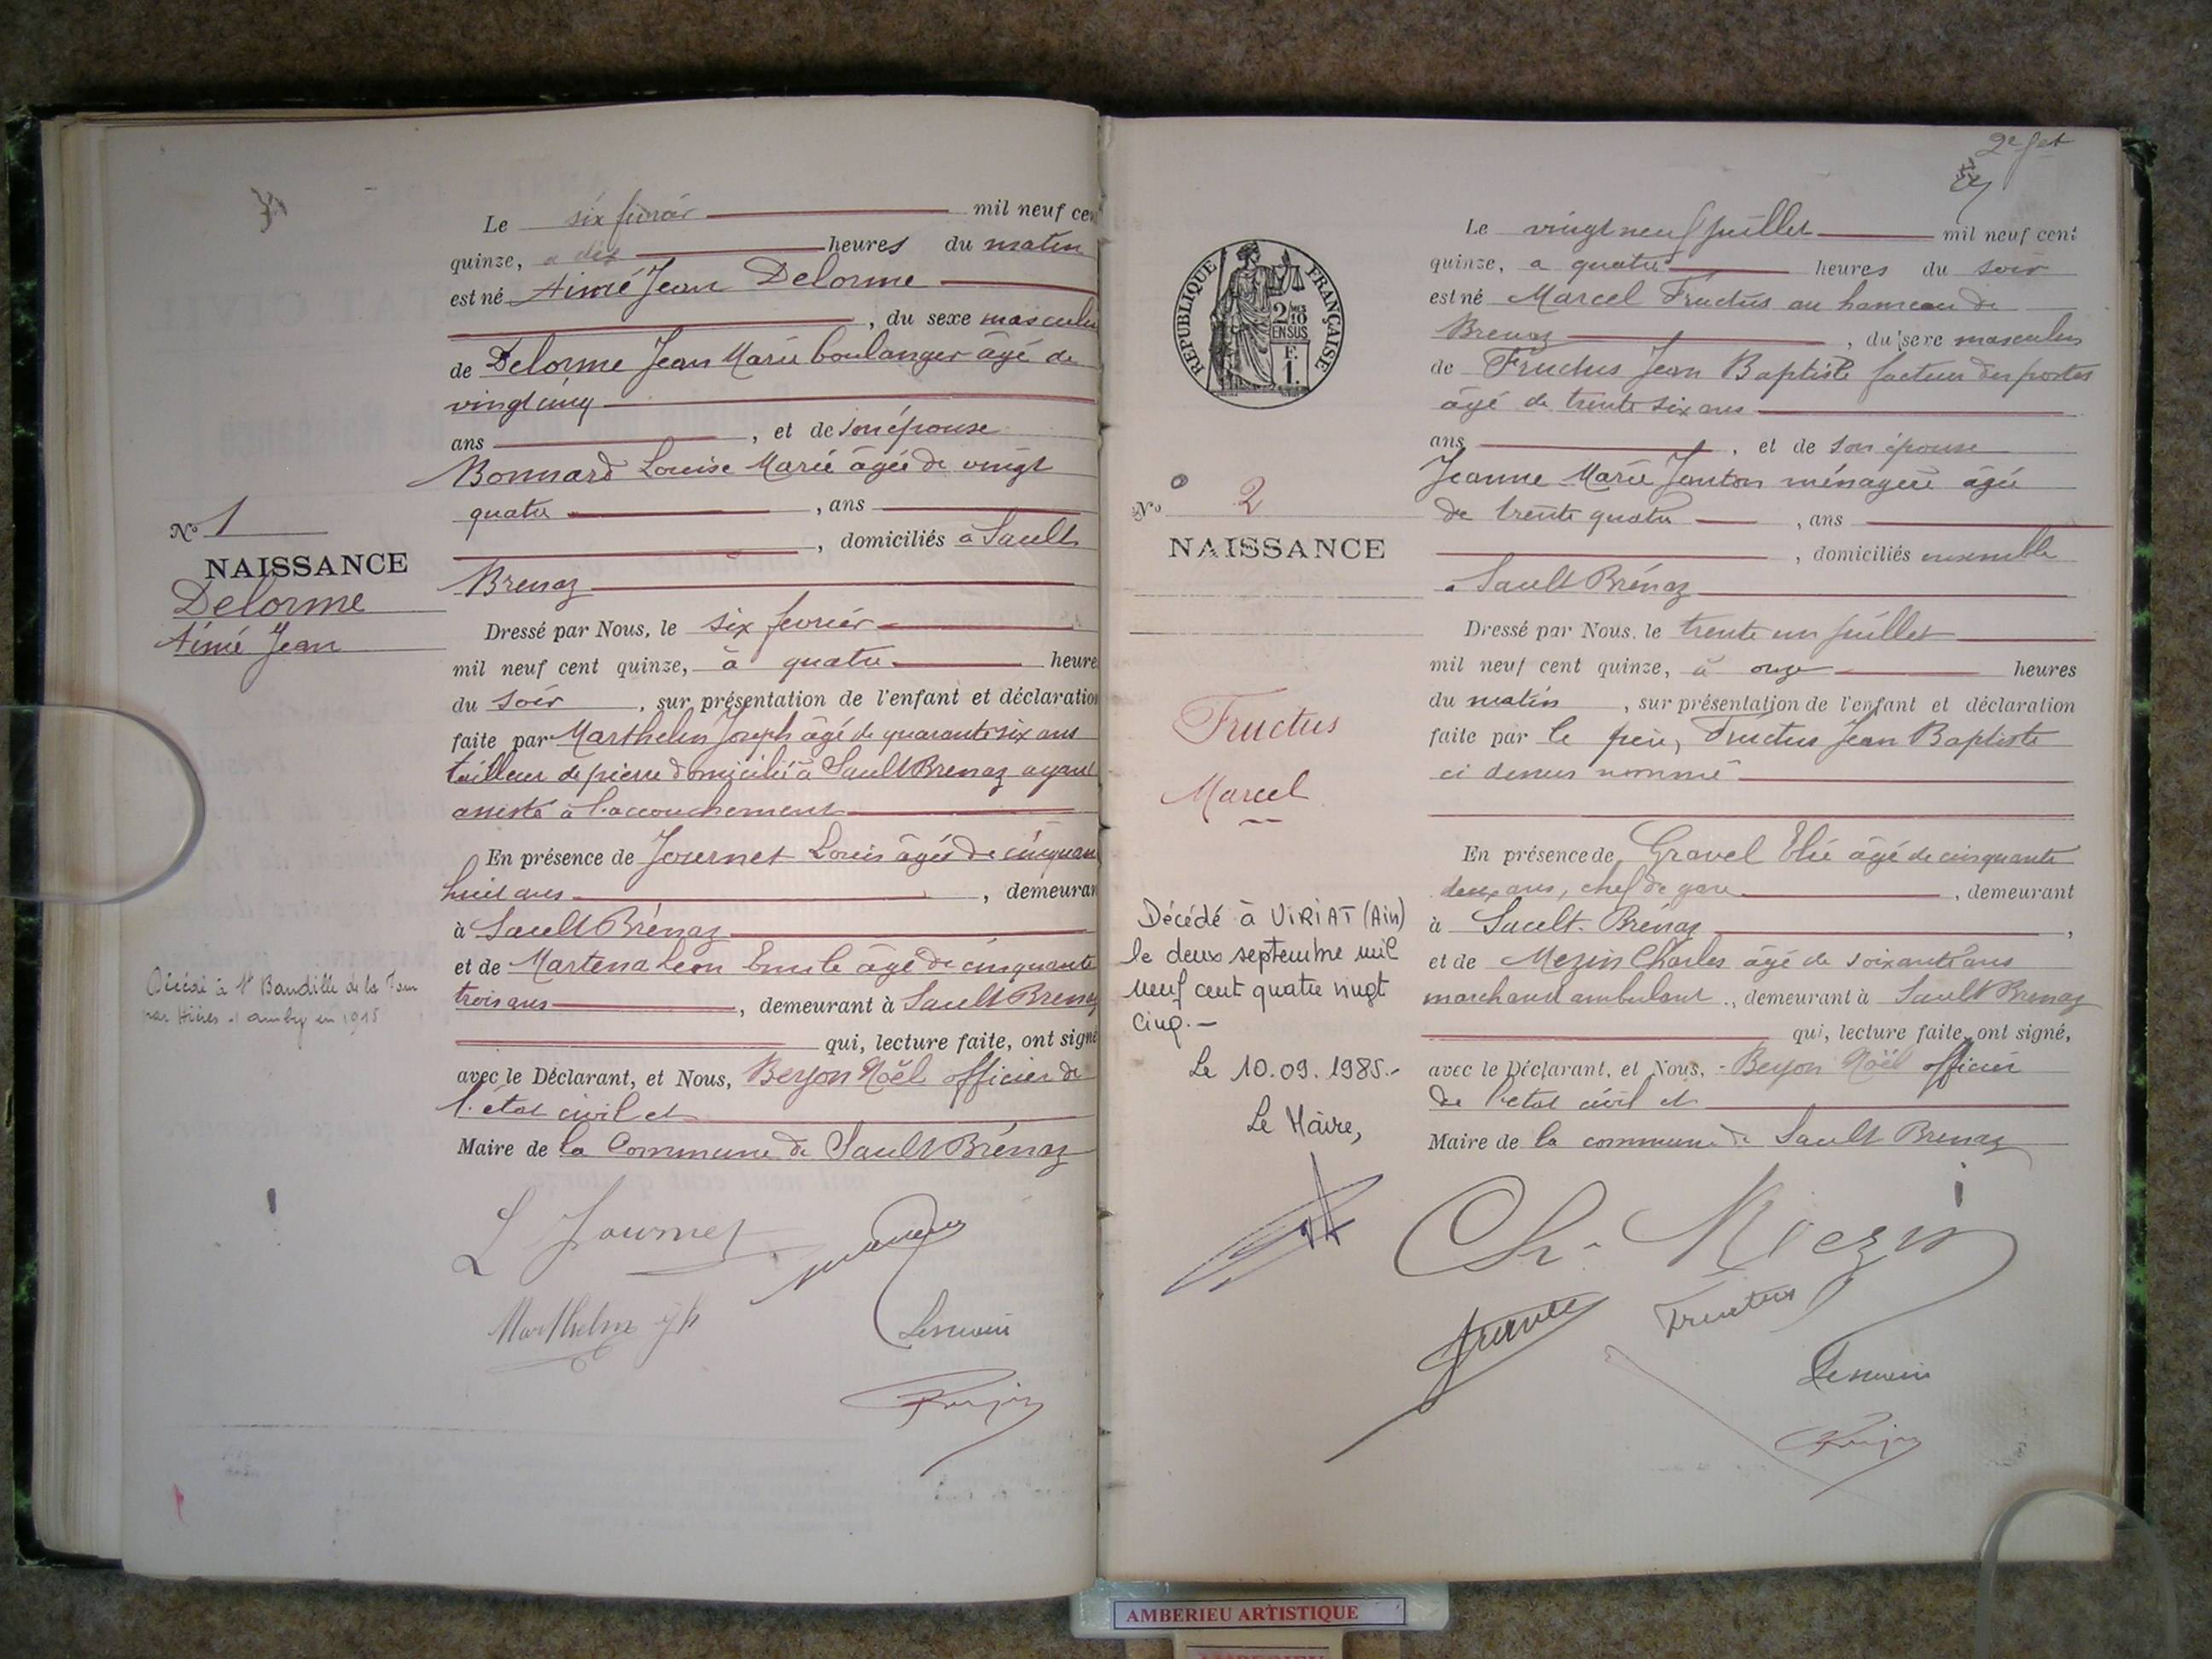 Le six février mil neuf cen
quinze, a dix heures du matin
est né Aimé Jean Delorme
, du sexe masculin
de Delorme Jean Marie boulanger âgé de
vingt cinq
ans , et de son épouse
Bonnard Louise Marie âgée de vingt
quatre , ans
, domiciliés à Sault
Brenaz
Dressé par Nous, le six fevrier
mil neuf cent quinze, à quatre heure
du soir , sur présentation de l'enfant et déclaration
faite par Marthelin Joseph âgé de quarante six ans
tailleur de pierre domicilié à Sault Brenaz ayant
assisté à l'accouchement
En présence de Journet Louis âgés de cinquan
huit ans , demeuran
à Sault Brénaz
et de Martena Leon Emile âgé de cinquante
trois ans , demeurant à Sault Brenaz
qui, lecture faite, ont signé
avec le Déclarant, et Nous, Beyon Noël officier de
l'état civil et
Maire de la Commune de Sault Brénaz
L Journet
Marthelin
N° 1
NAISSANCE
Delorme
Aimé Jean
Décédé à St Baudille de la Tour
par Hières s/ amby en 1915
2e fet
Le vingt neuf juillet mil neuf cent
quinze, a quatre heures du soir
est né Marcel Fructus au hameau de
Brenaz , du sexe masculin
de Fructus Jean Baptiste facteur des postes
âgé de trente six ans
ans , et de son épouse
Jeanne Marie Janton ménagère âgée
de trente quatre , ans
, domiciliés ensemble
a Sault Brénaz
Dressé par Nous, le trente un juillet
mil neuf cent quinze, à onze heures
du matin , sur présentation de l'enfant et déclaration
faite par le père, Fructus Jean Baptiste
ci dessus nommé
En présence de Gravel Elie âgé de cinquante
deux ans, chef de gare , demeurant
à Sault-Brénaz ,
et de Mezin Charles âgé de soixante ans
marchand ambulant , demeurant à Sault Brenaz
qui, lecture faite, ont signé,
avec le Déclarant, et Nous, Beyon Noël officier
de l'état civil et
Maire de la commune de Sault Brenaz
Ch. Mezin
Fructus
RÉPUBLIQUE FRANÇAISE
2/10 EN SUS
F. 1.
N° 2
NAISSANCE
Fructus
Marcel
Décédé à VIRIAT (Ain)
le deux septembre mil
neuf cent quatre vingt
cinq.-
Le 10.09.1985.-
Le Maire,
AMBERIEU ARTISTIQUE
AMBERIEU